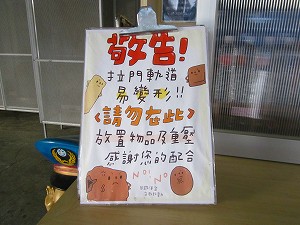 敬告!
拉門軌道
易變形!!
<請勿在此>
放置物品及重壓
感謝您的配合
NO! NO